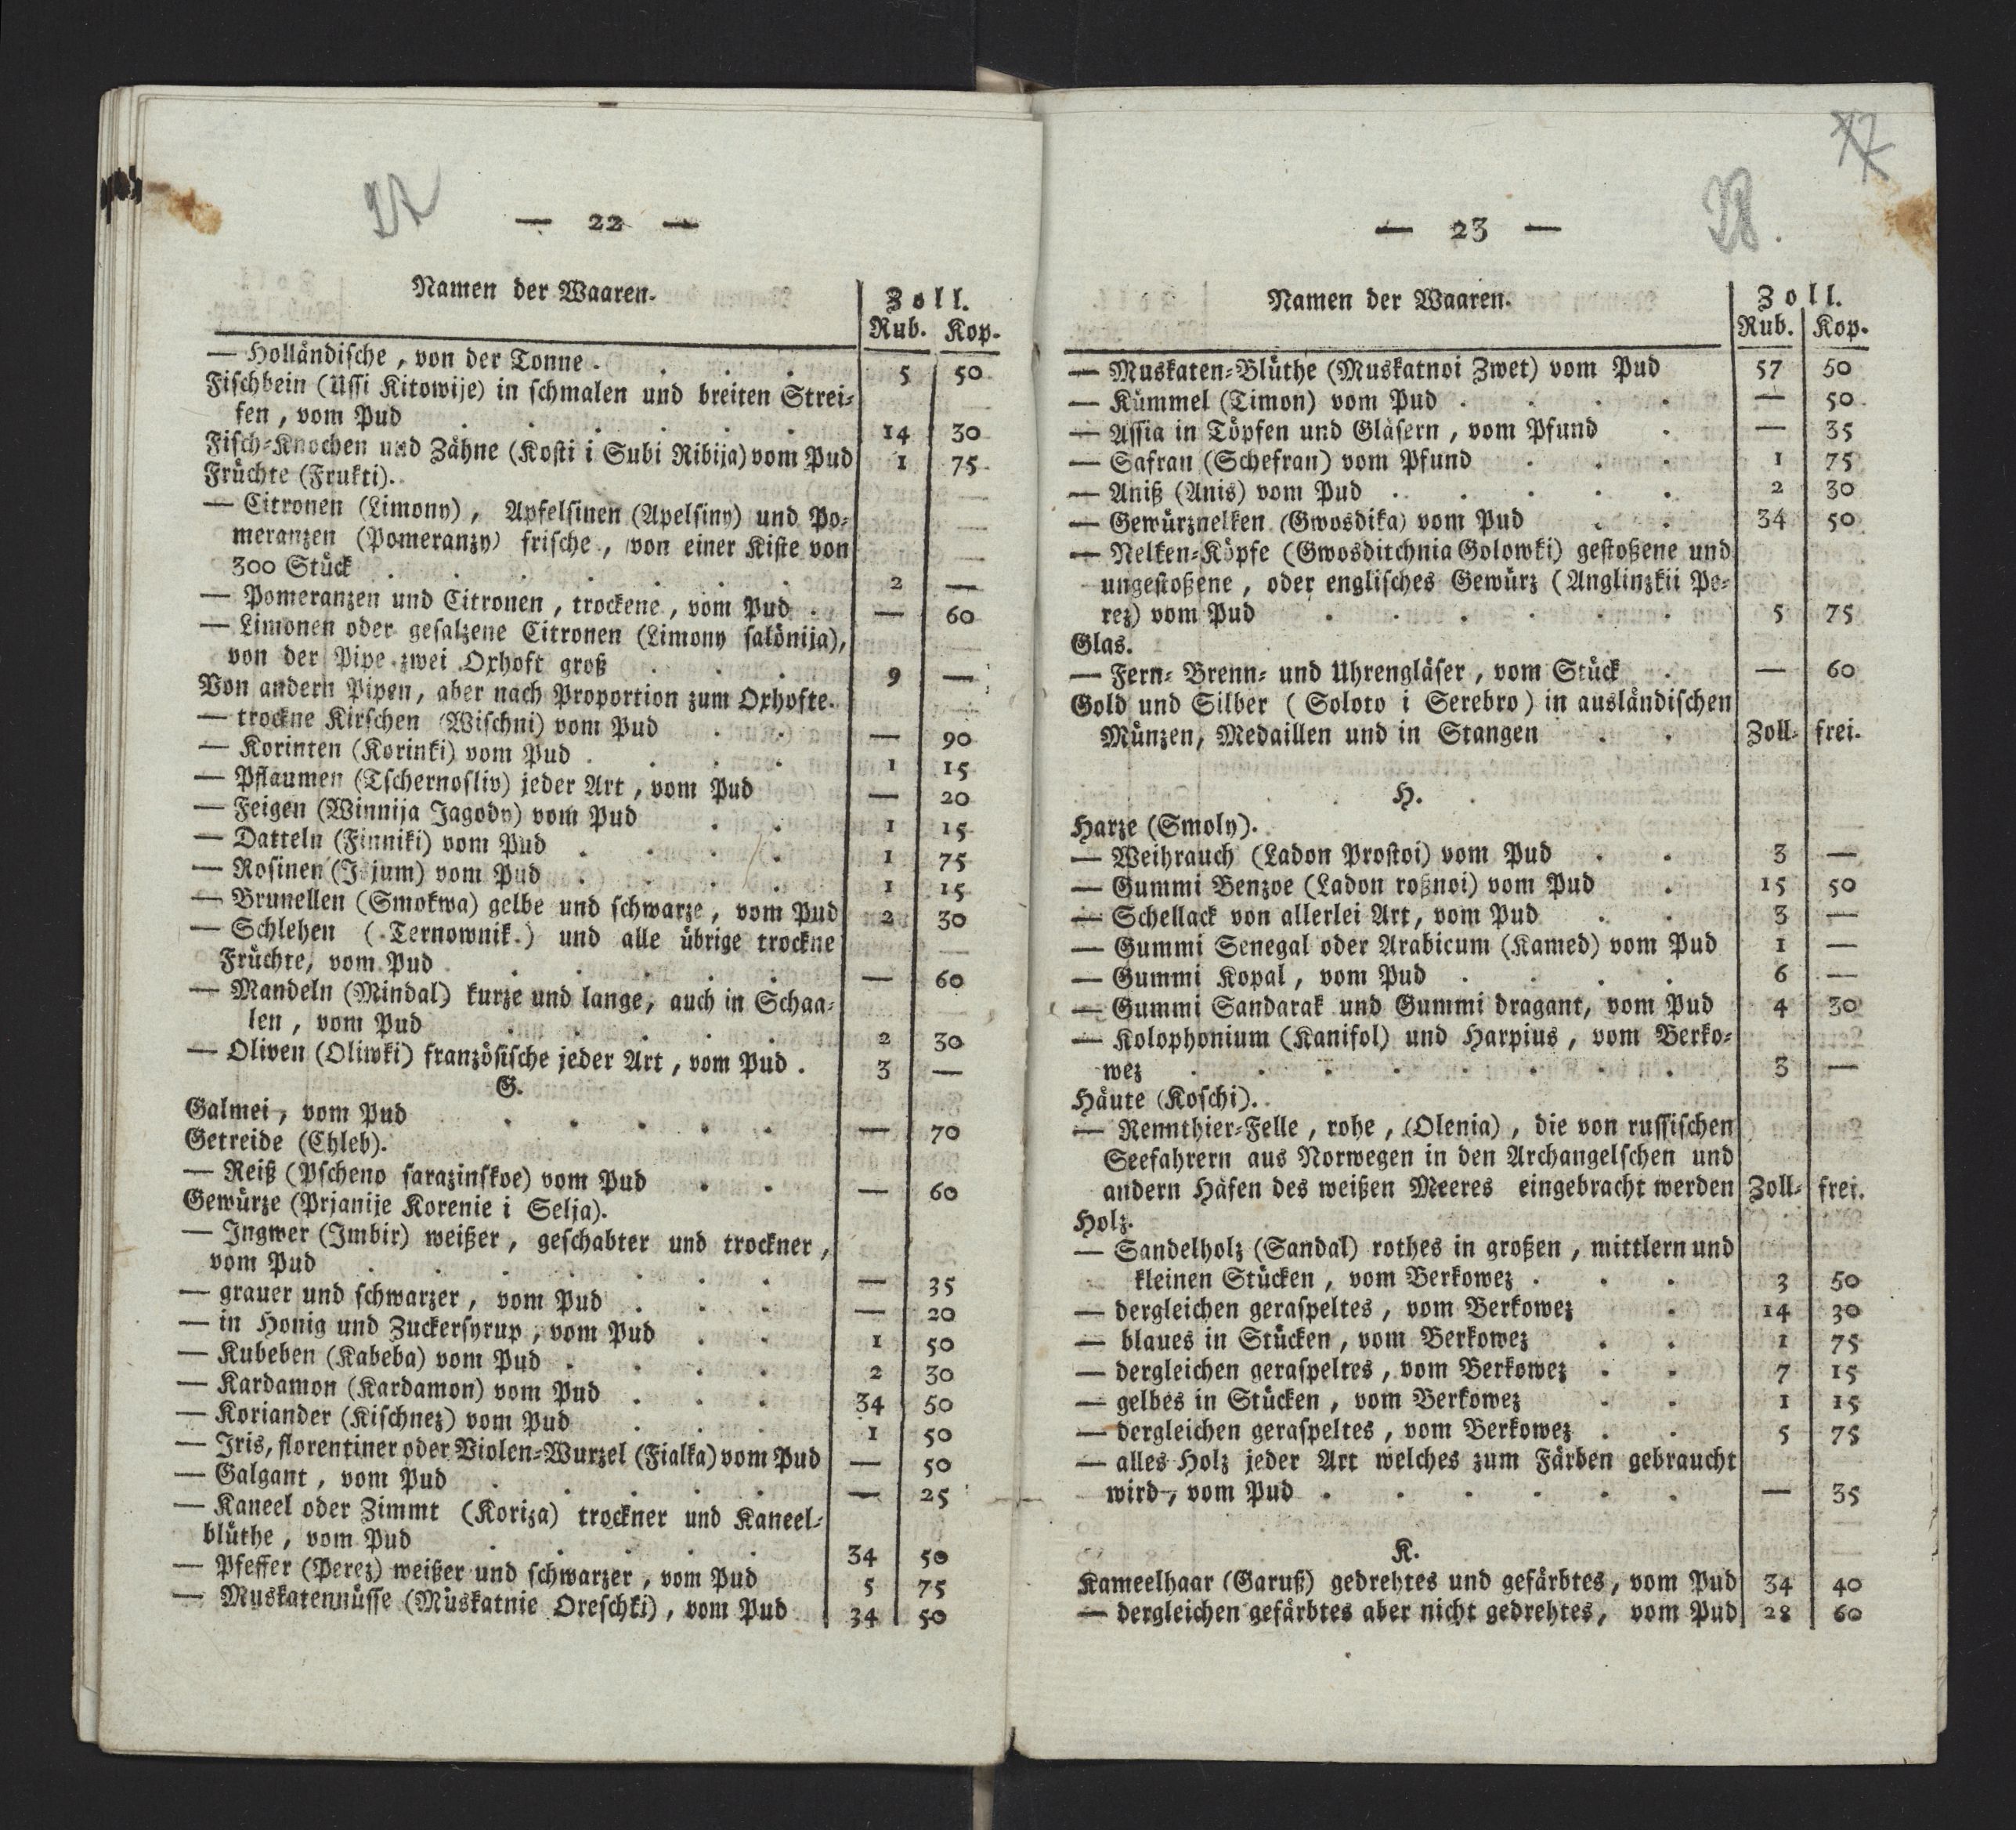 — 22 —
Namen der Waaren.
Zoll.
Rub. Kop.
— Holländische, von der Tonne . . . . 5 50
Fischbein (Ussi Kitowije) in schmalen und breiten Strei-
fen, vom Pud . . . . . . 14 30
Fisch-Knochen und Zähne (Kosti i Subi Ribija) vom Pud 1 75
Früchte (Frukti).
— Citronen (Limony), Apfelsinen (Apelsiny) und Po-
meranzen (Pomeranzy) frische, von einer Kiste von
300 Stück . . . . . . . 2 —
— Pomeranzen und Citronen, trockene, vom Pud . — 60
— Limonen oder gesalzene Citronen (Limony salönija),
von der Pipe zwei Oxhoft groß . . . 9 —
Von andern Pipen, aber nach Proportion zum Oxhofte.
— trockne Kirschen (Wischni) vom Pud . . — 90
— Korinten (Korinki) vom Pud . . . . 1 15
— Pflaumen (Tschernosliv) jeder Art, vom Pud — 20
— Feigen (Winnija Jagody) vom Pud . . 1 15
— Datteln (Finniki) vom Pud . . . . 1 75
— Rosinen (Isjum) vom Pud . . . . 1 15
— Brunellen (Smokwa) gelbe und schwarze, vom Pud 2 30
— Schlehen (Ternownik) und alle übrige trockne
Früchte, vom Pud . . . . . — 60
— Mandeln (Mindal) kurze und lange, auch in Schaa-
len, vom Pud . . . . . 2 30
— Oliven (Oliwki) französische jeder Art, vom Pud . 3 —
G.
Galmei, vom Pud . . . . . — 70
Getreide (Chleb).
— Reiß (Pscheno sarazinskoe) vom Pud . . — 60
Gewürze (Prjanije Korenie i Selja).
— Ingwer (Imbir) weißer, geschabter und trockner,
vom Pud . . . . . . . — 35
— grauer und schwarzer, vom Pud . . . — 20
— in Honig und Zuckersyrup, vom Pud . . 1 50
— Kubeben (Kabeba) vom Pud . . . . 2 30
— Kardamon (Kardamon) vom Pud . . . 34 50
— Koriander (Kischnez) vom Pud . . . 1 50
— Iris, florentiner oder Violen-Wurzel (Fialka) vom Pud — 50
— Galgant, vom Pud . . . . . — 25
— Kaneel oder Zimmt (Koriza) trockner und Kaneel-
blüthe, vom Pud . . . . . 34 50
— Pfeffer (Perez) weißer und schwarzer, vom Pud 5 75
— Muskatennüsse (Müskatnie Oreschki), vom Pud 34 50
28.
— 23 —
Namen der Waaren.
Zoll.
Rub. Kop.
— Muskaten-Blüthe (Muskatnoi Zwet) vom Pud 57 50
— Kümmel (Timon) vom Pud . . . . — 50
— Assia in Töpfen und Gläsern, vom Pfund . — 35
— Safran (Schefran) vom Pfund . . . 1 75
— Aniß (Anis) vom Pud . . . . . 2 30
— Gewürznelken (Gwosdika) vom Pud . . 34 50
— Nelken-Köpfe (Gwosditchnia Golowki) gestoßene und
ungestoßene, oder englisches Gewürz (Anglinzkii Pe-
rez) vom Pud . . . . . . 5 75
Glas.
— Fern- Brenn- und Uhrengläser, vom Stück . — 60
Gold und Silber (Soloto i Serebro) in ausländischen
Münzen, Medaillen und in Stangen . . Zoll- frei.
H.
Harze (Smoly).
— Weihrauch (Ladon Prostoi) vom Pud . . 3 —
— Gummi Benzoe (Ladon roßnoi) vom Pud . 15 50
— Schellack von allerlei Art, vom Pud . . 3 —
— Gummi Senegal oder Arabicum (Kamed) vom Pud 1 —
— Gummi Kopal, vom Pud . . . . 6 —
— Gummi Sandarak und Gummi dragant, vom Pud 4 30
— Kolophonium (Kanifol) und Harpius, vom Berko-
wez . . . . . . . . 3 —
Häute (Koschi).
— Rennthier-Felle, rohe, (Olenia), die von russischen
Seefahrern aus Norwegen in den Archangelschen und
andern Häfen des weißen Meeres eingebracht werden Zoll- frei.
Holz.
— Sandelholz (Sandal) rothes in großen, mittlern und
kleinen Stücken, vom Berkowez . . . 3 50
— dergleichen geraspeltes, vom Berkowez . 14 30
— blaues in Stücken, vom Berkowez . . 1 75
— dergleichen geraspeltes, vom Berkowez . . 7 15
— gelbes in Stücken, vom Berkowez . . 1 15
— dergleichen geraspeltes, vom Berkowez . . 5 75
— alles Holz jeder Art welches zum Färben gebraucht
wird, vom Pud . . . . . . — 35
K.
Kameelhaar (Garuß) gedrehtes und gefärbtes, vom Pud 34 40
— dergleichen gefärbtes aber nicht gedrehtes, vom Pud 28 60